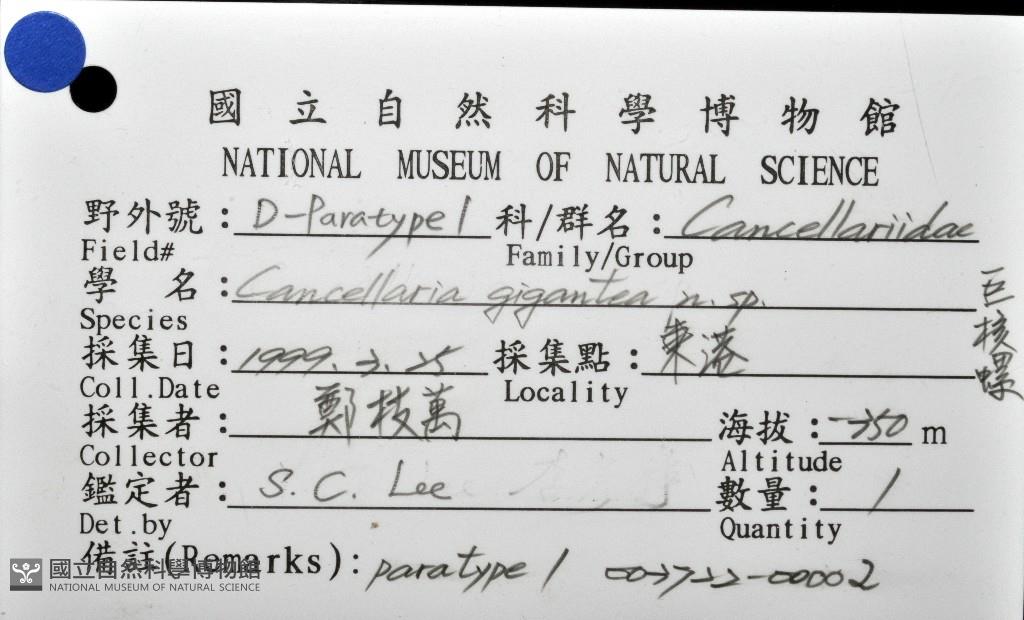 國立自然科學博物館
NATIONAL MUSEUM OF NATURAL SCIENCE
野外號: D-Paratype 1 科/群名: Cancellariidae
Field# Family/Group
學名: Cancellaria gigantea n. sp.
巨核螺
Species
採集日: 1999. 2. 25 採集點: 東港
Coll.Date Locality
採集者: 鄭枝萬 海拔: -250 m
Collector Altitude
鑑定者: S. C. Lee 數量: 1
Det.by Quantity
備註(Remarks): paratype 1 002722-00002
國立自然科學博物館
NATIONAL MUSEUM OF NATURAL SCIENCE